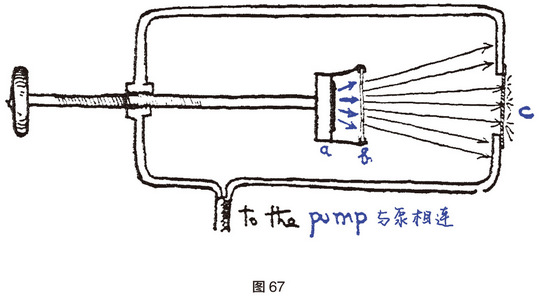 a
b
c
to the pump 与泵相连
图 67